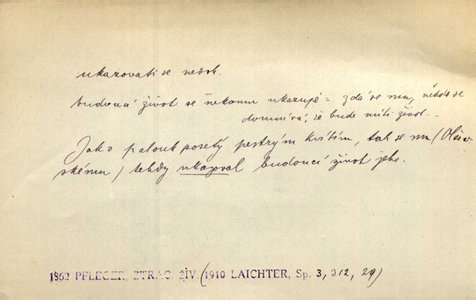 ukazovati se nedok.
budoucí život se někomu ukazuje = zdá se mu, někdo se
domnívá, že bude míti život.
Jako palouk posetý pestrým kvítím, tak se mu / Olšov-
skému / tehdy ukazoval budoucí život jeho.
1862 PFLEGER, ZTRAC. ŽIV. (1910 LAICHTER, Sp. 3, 312, 29)